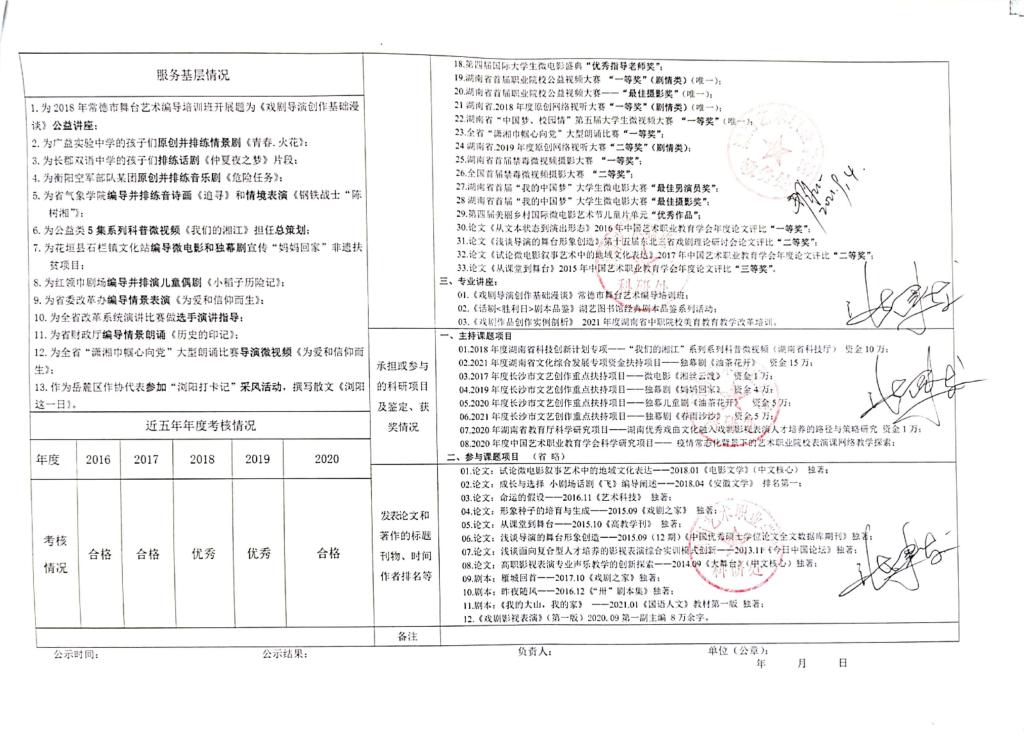 服务基层情况
1.为2018年常德市舞台艺术编导培训班开展题为《戏剧导演创作基础漫
谈》公益讲座;
2.为广益实验中学的孩子们原创并排练情景剧《青春.火花》;
3.为长郡双语中学的孩子们排练话剧《仲夏夜之梦》片段;
4.为衡阳空军部队某团原创并排练音乐剧《危险任务》;
5.为省气象学院编导并排练音诗画《追寻》和情境表演《钢铁战士“陈
树湘”》;
6.为公益类5集系列科普微视频《我们的湘江》担任总策划;
7.为花垣县石栏镇文化站编导微电影和独幕剧宣传“妈妈回家”非遗扶
贫项目;
8.为红领巾剧场编导并排演儿童偶剧《小稻子历险记》;
9.为省委改革办编导情景表演《为爱和信仰而生》;
10.为全省改革系统演讲比赛做选手演讲指导;
11.为省财政厅编导情景朗诵《历史的印记》;
12.为全省“潇湘巾帼心向党”大型朗诵比赛导演微视频《为爱和信仰而
生》;
13.作为岳麓区作协代表参加“浏阳打卡记”采风活动，撰写散文《浏阳
这一日》。
近五年年度考核情况
年度 2016 2017 2018 2019 2020
考核
情况 合格 合格 优秀 优秀 合格
18.第四届国际大学生微电影盛典“优秀指导老师奖”;
19.湖南省首届职业院校公益视频大赛 “一等奖”(剧情类)(唯一);
20.湖南省首届职业院校公益视频大赛——“最佳摄影奖”(唯一);
21湖南省.2018年度原创网络视听大赛“一等奖”(剧情类);
22.湖南省“中国梦、校园情”第五届大学生微视频大赛 “一等奖”(唯一);
23.全省“潇湘巾帼心向党”大型朗诵比赛“一等奖”;
24湖南省.2019年度原创网络视听大赛“二等奖”(剧情类);
25.湖南省首届禁毒微视频摄影大赛 “一等奖”;
26.全国首届禁毒微视频摄影大赛 “二等奖”;
27.湖南省首届“我的中国梦”大学生微电影大赛“最佳男演员奖”;
28湖南省首届“我的中国梦”大学生微电影大赛“最佳摄影奖”;
29.第四届美丽乡村国际微电影艺术节儿童片单元“优秀作品”;
30.论文《从文本状态到演出形态》2016年中国艺术职业教育学会年度论文评比“一等奖”;
31.论文《浅谈导演的舞台形象创造》第十五届东北三省戏剧理论研讨会论文评比“二等奖”;
32.论文《试论微电影叙事艺术中的地域文化表达》2017年中国艺术职业教育学会年度论文评比“二等奖”;
33.论文《从课堂到舞台》2015年中国艺术职业教育学会年度论文评比“三等奖”.
三、专业讲座:
01.《戏剧导演创作基础漫谈》常德市舞台艺术编导培训班;
02.《话剧<胜利日>剧本品鉴》湖艺图书馆经典剧本品鉴系列活动;
03.《戏剧作品创作实例剖析》 2021年度湖南省中职院校美育教育教学改革培训.
2021.9,4.
承担或参与
的科研项目
及鉴定、获
奖情况
一、主持课题项目
01.2018年度湖南省科技创新计划专项——“我们的湘江”系列系列科普微视频（湖南省科技厅） 资金10万;
02.2021年度湖南省文化综合发展专项资金扶持项目——独幕剧《油茶花开》 资金15万;
03.2017年度长沙市文艺创作重点扶持项目——微电影《湘丝云泷》 资金1万;
04.2019年度长沙市文艺创作重点扶持项目——独幕剧《妈妈回家》 资金4万;
05.2020年度长沙市文艺创作重点扶持项目——独幕儿童剧《油茶花开》 资金5万;
06.2021年度长沙市文艺创作重点扶持项目——独幕剧《春雨沙沙》 资金5万;
07.2020年湖南省教育厅科学研究项目——湖南优秀戏曲文化融入戏剧影视表演人才培养的路径与策略研究 资金1万;
08.2020年度中国艺术职业教育学会科学研究项目—— 疫情常态化背景下的艺术职业院校表演课网络教学探索;
二、参与课题项目 （省略）
发表论文和
著作的标题
刊物、时间
作者排名等
01.论文：试论微电影叙事艺术中的地域文化表达——2018.01《电影文学》(中文核心) 独著;
02.论文：成长与选择 小剧场话剧《飞》编导阐述——2018.04《安徽文学》 排名第一;
03.论文：命运的假设——2016.11《艺术科技》 独著;
04.论文：形象种子的培育与生成——2015.09《戏剧之家》 独著;
05.论文：从课堂到舞台——2015.10《高教学刊》 独著;
06.论文：浅谈导演的舞台形象创造——2015.09（12期）《中国优秀硕士学位论文全文数据库期刊》独著;
07.论文：浅谈面向复合型人才培养的影视表演综合实训模式创新——2013.11《今日中国论坛》独著;
08.论文：高职影视表演专业声乐教学的创新探索——2014.09《大舞台》(中文核心) 独著;
09.剧本：雁城回首——2017.10《戏剧之家》独著;
10.剧本：昨夜随风——2016.12《“卅”剧本集》独著;
11.剧本：《我的大山，我的家》 ——2021.01《国语人文》教材第一版 独著;
12.《戏剧影视表演》(第一版) 2020.09第一副主编 8万余字。
备注
公示时间: 公示结果: 负责人: 单位（公章）:
年 月 日